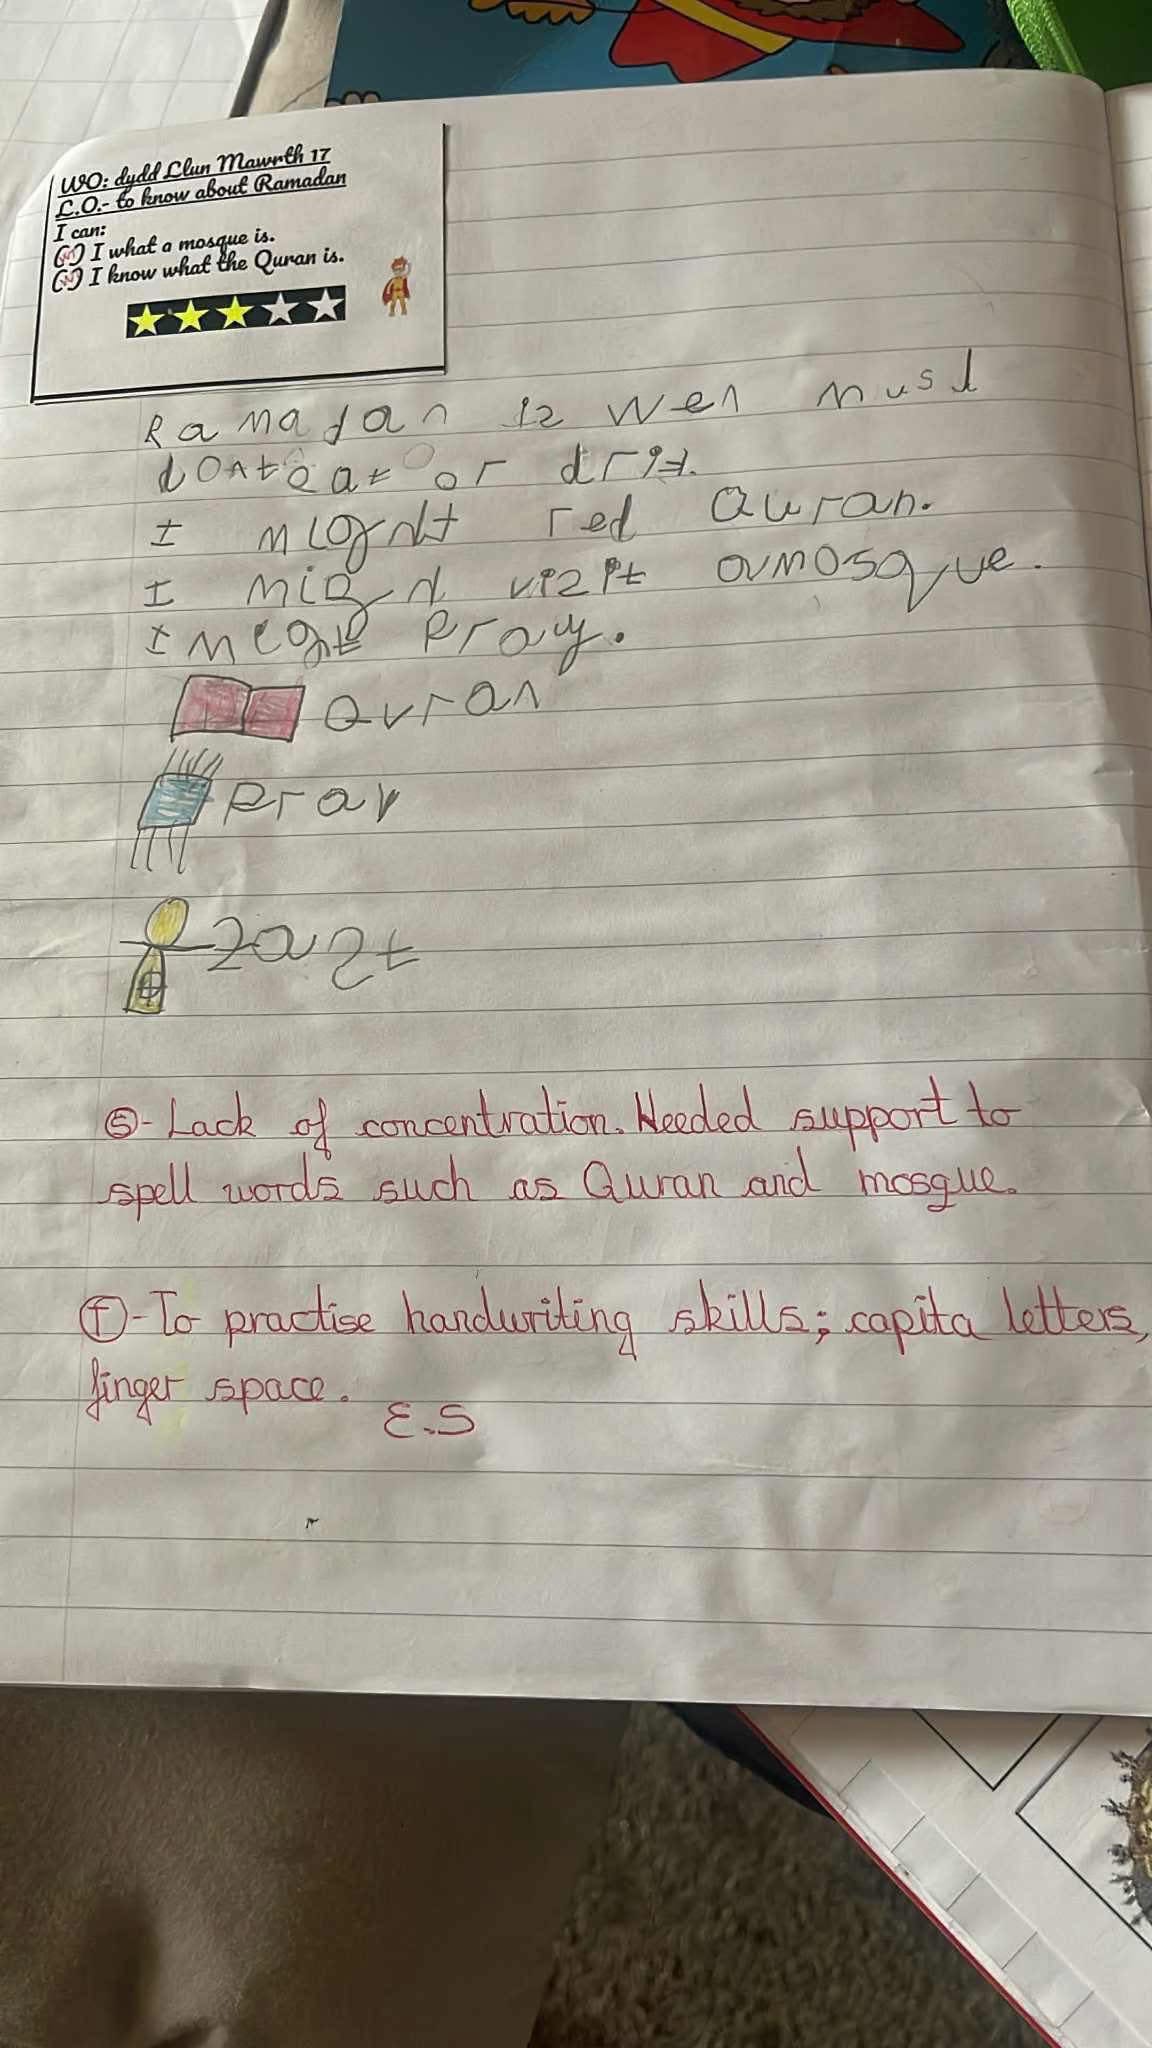 WO: dydd Llun Mawrth 17
L.O.- to know about Ramadan
I can:
I what a mosque is.
I know what the Quran is.
Ramadan iz wen musl
dont eat or drit.
I mignt red Quran.
I migh vizit a mosque.
I megt Pray.
Quran
Pray
S- Lack of concentration. Needed support to
spell words such as Quran and mosque.
T- To practise handwriting skills; capita letters,
finger space.
E.S